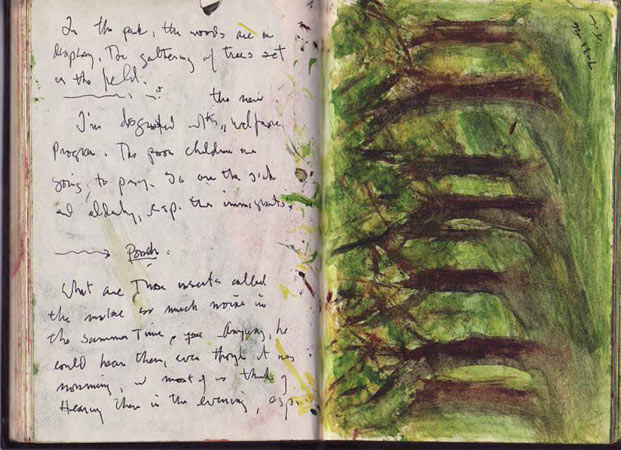 In the park, the woods are on
display. The gathering of trees set
in the field.
the new
I'm disgusted with welfare
Program. The poor children are
going to pay. So are the sick
and elderly, esp. the immigrants.
Porch.
What are those insects called
the make so much noise in
the summer Time. Anyway, he
could hear them, even though it was
morning, and most of us think of
Hearing them in the evening, esp.